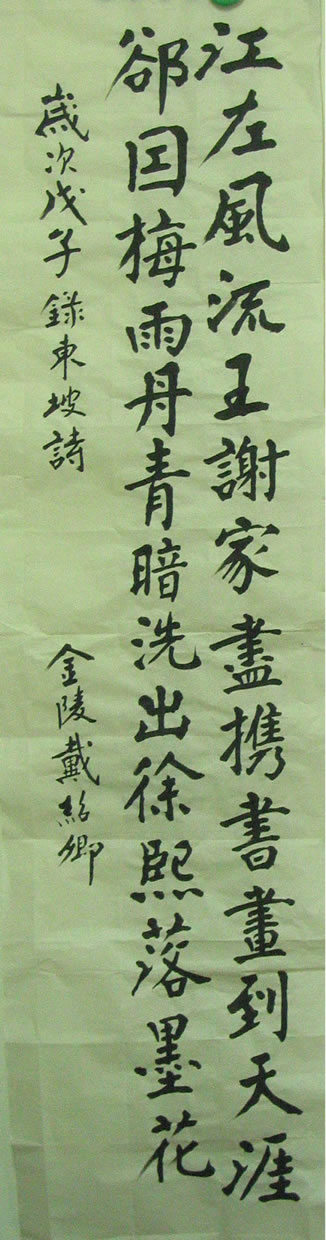 江左風流王謝家盡携書畫到天涯
郤因梅雨丹青暗洗出徐熙落墨花
歲次戊子錄東坡詩 金陵戴紹卿